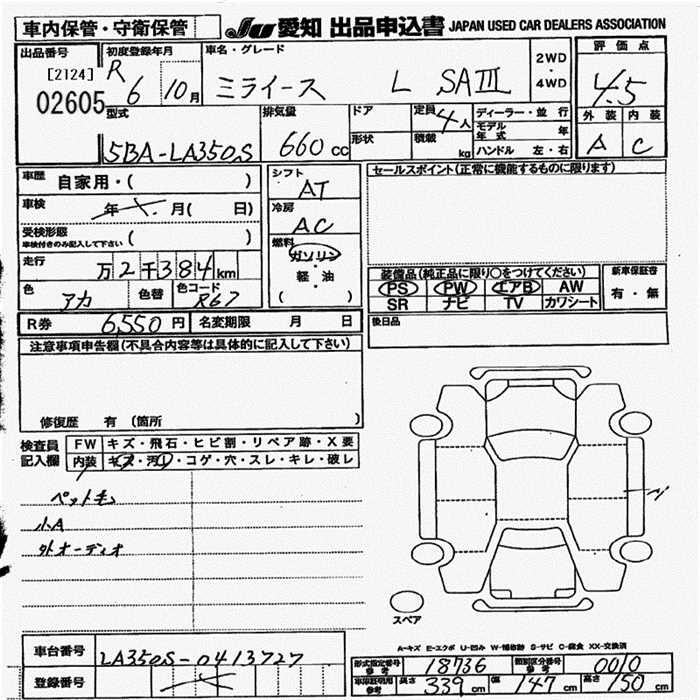 車内保管・守衛保管
JU 愛知 出品申込書 JAPAN USED CAR DEALERS ASSOCIATION
出品番号 [2124] 02605
初度登録年月 R 6 10月
車名・グレード ミライース L SAⅢ
2WD・4WD
評価点 4.5
外装 A 内装 C
型式 5BA-LA350S
排気量 660 cc
ドア 形状
定員 4人
積載 kg
ディーラー・並行
モデル年式 年
ハンドル 左・右
車歴 自家用・( )
車検 年 月( 日)
受検形態 車検付きのみ記入して下さい ( )
走行 万2千384km
色 アカ 色替 色コード R67
シフト AT
冷房 AC
燃料 ガソリン・軽・油 ( )
セールスポイント(正常に機能するものに限ります)
装備品(純正品に限り○をつけてください)
PS PW エアB AW
SR ナビ TV カワシート
新車保証書 有・無
後日品
R券 6,550円 名変期限 月 日
注意事項申告欄(不具合内容等は具体的に記入して下さい)
修復歴 有 (箇所 )
検査員記入欄
FW キズ・飛石・ヒビ割・リペア跡・X要
内装 キズ・汚れ・コゲ・穴・スレ・キレ・破レ
ペット毛
小A
外オーディオ
スペア
A-キズ E-エクボ U-凹み W-補修跡 S-サビ C-腐食 XX-交換済
車台番号 LA350S-0413727
登録番号
型式指定番号 参考 18736 類別区分番号 参考 0010
車庫証明用 参考 長さ 339cm 幅 147cm 高さ 150cm